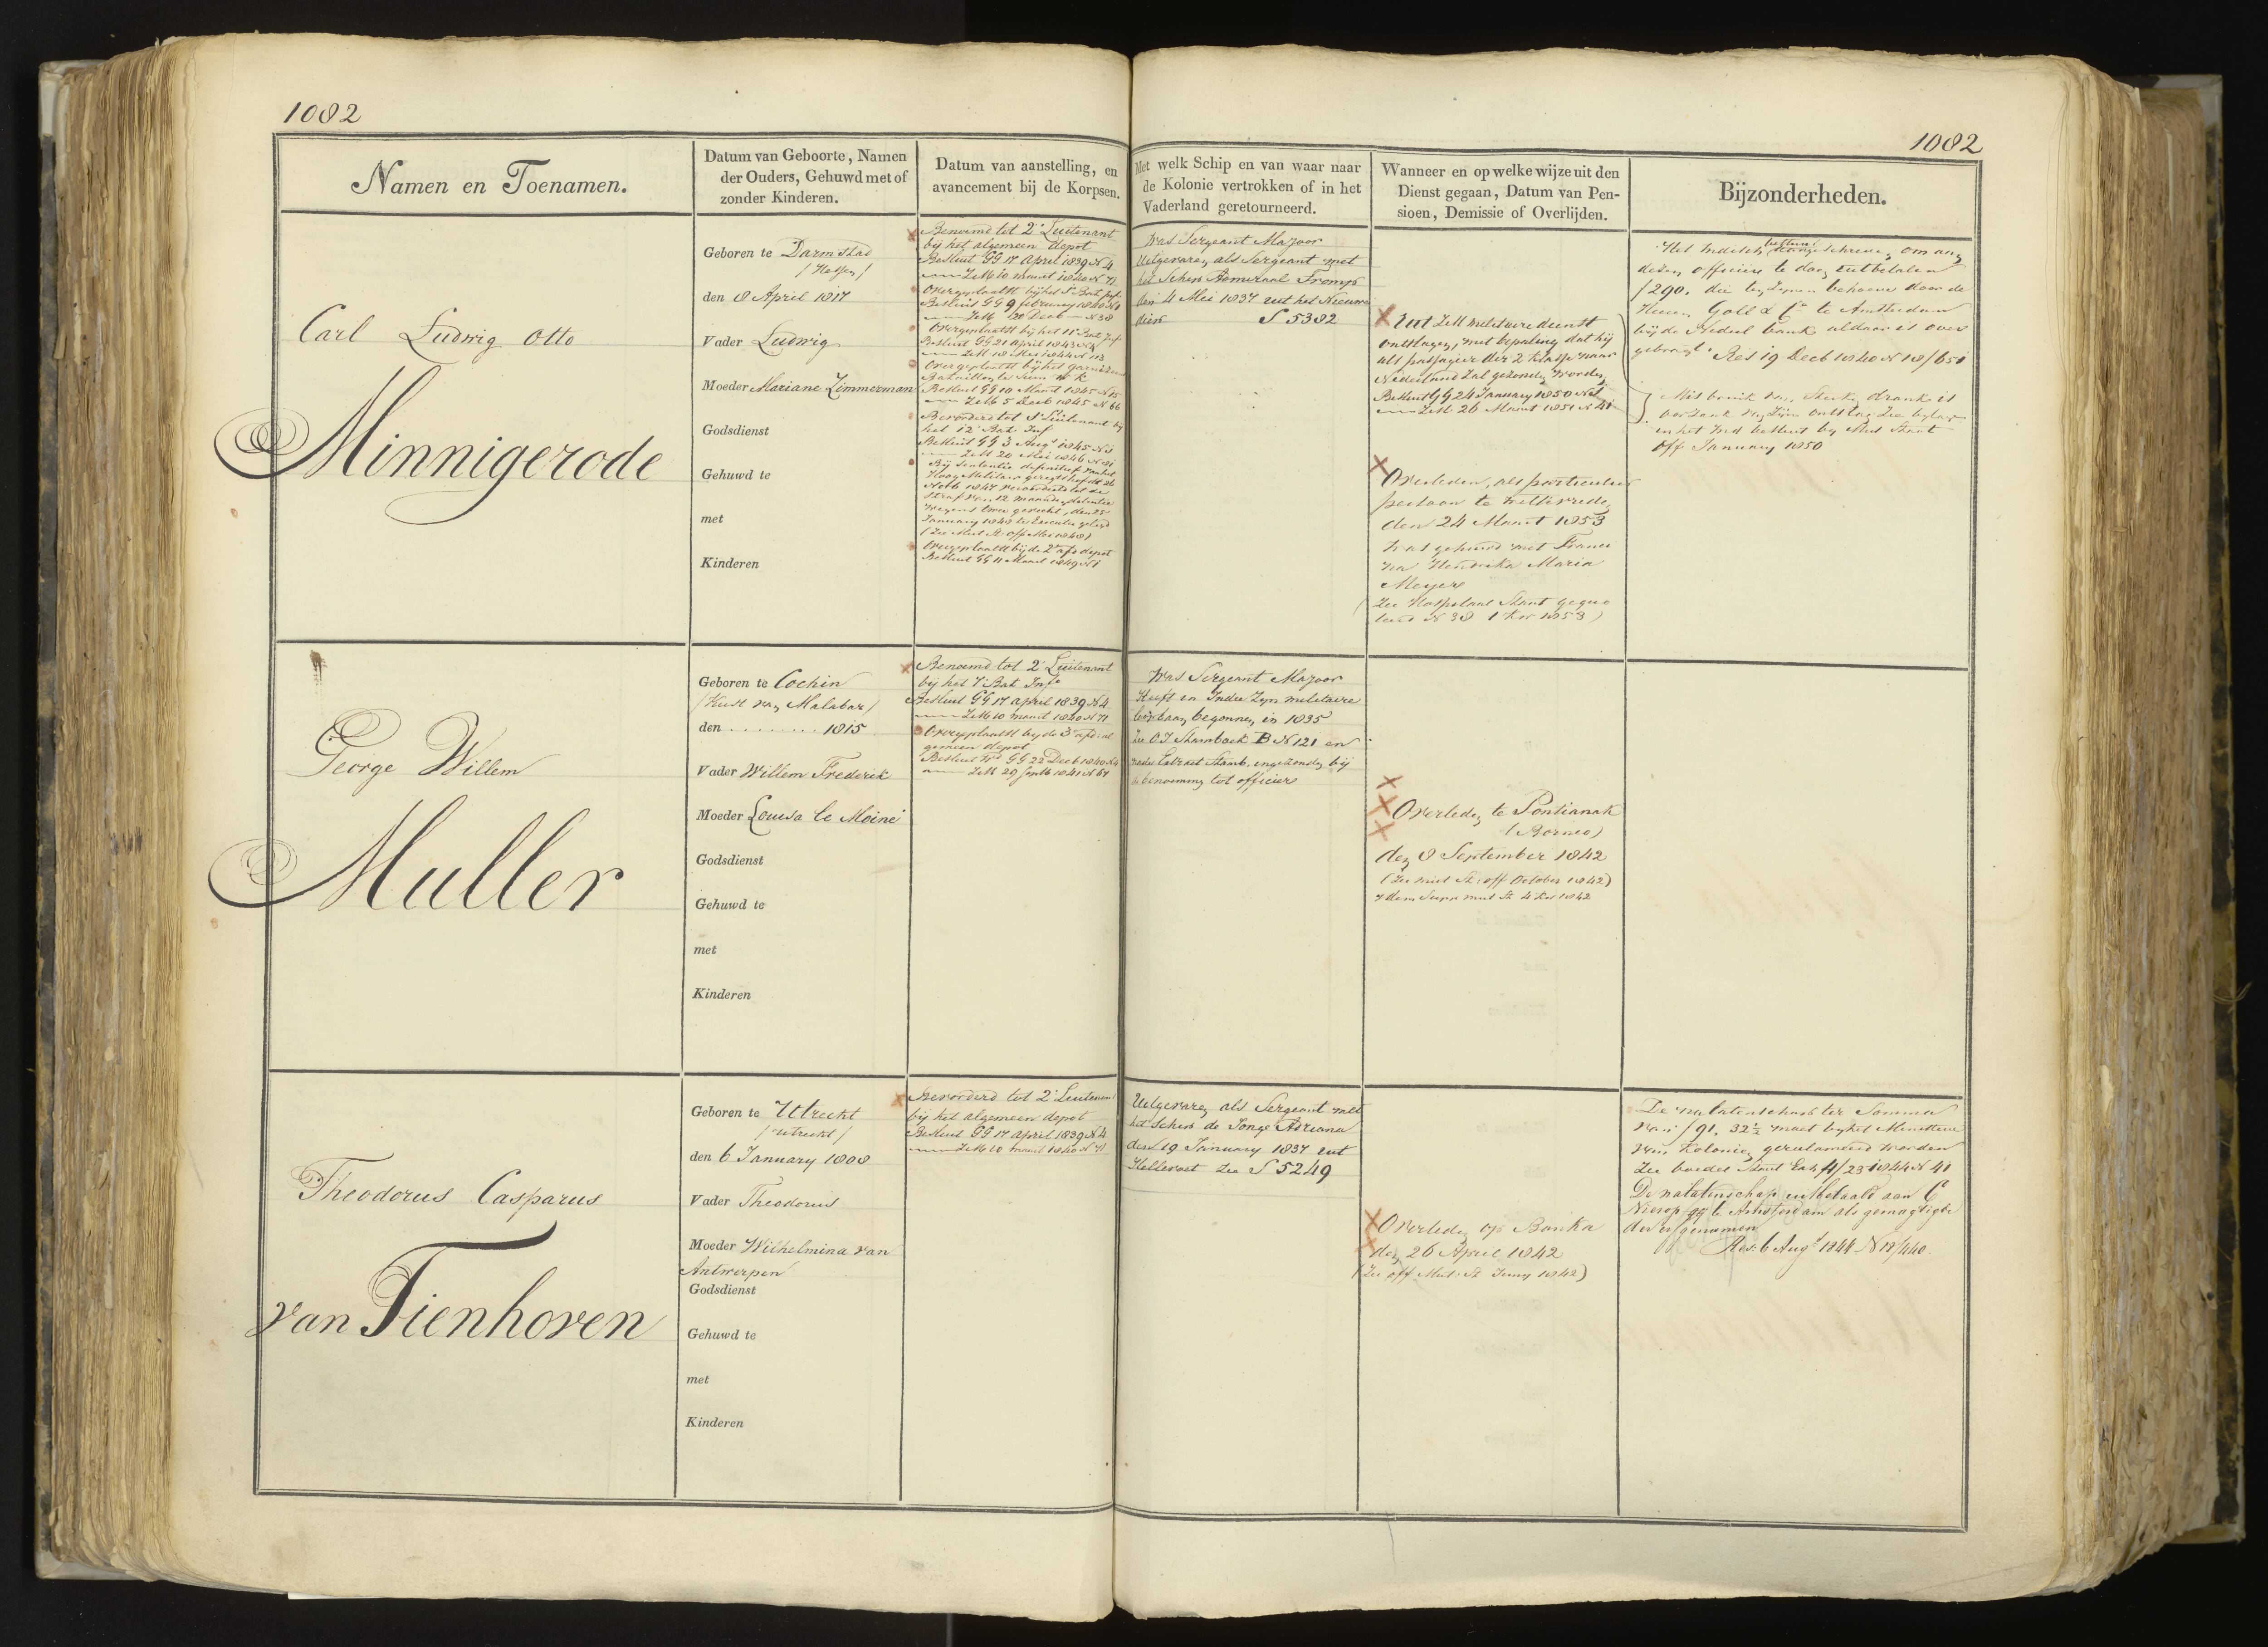 1082
1082
Namen en Toenamen.
Datum van Geboorte, Namen
der Ouders, Gehuwd met of
zonder Kinderen.
Datum van aanstelling, en
avancement bij de Korpsen.
Met welk Schip en van waar naar
de Kolonie vertrokken of in het
Vaderland geretourneerd.
Wanneer en op welke wijze uit den
Dienst gegaan, Datum van Pen-
sioen, Demissie of Overlijden.
Bijzonderheden.
Carl Ludwig Otto
Minnigerode
Geboren te Darmstad
/Hessen/
den 8 April 1817
Vader Ludwig
Moeder Mariane Zimmerman
Godsdienst
Gehuwd te
met
Kinderen
Benoemd tot 2e Luitenant
bij het algemeen depot
Besluit GG 17 April 1839 N 4
ZMB 10 maart 1840 N 71
Overgeplaatst bij het Bat Inf
Besluit GG 9 february 1840 N 1
Decb N 38
Overgeplaatst bij het 11e Bat Inf
Besluit GG 21 April 1843 N
Mei 1844 N 113
Overgeplaatst bij het garnizoens
Bataillon
Besluit GG 19 Maart 1845 N 15
5 Decb 1845 N 66
Bevorderd tot 1e Luitenant bij
het 12e Bat. Inf
Besluit GG 3 Augt 1845 N 1
20 Mei 1846 N
Bij Sententie definitief van het
Hoog Militair geregtshof dd 26
1847 veroordeeld tot de
straf van 12 maanden detentie
wegens twee gevecht, den 25
January 1848 ter Executie gelegd
(Zie Mut St. off Mei 1848)
Overgeplaatst bij de 2e afd depot
Besluit GG 11 Maart 1849 N 1
Was Sergeant Majoor
Uitgevaren als Sergeant met
het Schip Admiraal Tromp
den 4 Mei 1837 uit het Nieuwe
diep S 5382
Uit ZM militaire dienst
ontslagen, met bepaling dat hij
als passagier der 2 klasse naar
Nederland zal gezonden worden
Besluit GG 24 January 1850 N 1
ZMB 26 Maart 1851 N 41
Overleden, als particulier
persoon te Weltevreden
den 24 Maart 1853
Was gehuwd met
Hendrika Maria
Meyer
(Zie Hospitaal Staat
N 38 1 Kw 1853)
Het Indisch bestuur schreven om aan
dezen officier te doen uitbetalen
ƒ290. die ten zijnen behoeve door de
Heeren Goll & Co te Amsterdam
bij de Nederl bank aldaar is over
gebragt. Res 19 Decb 1840 N 18/651
Misbruik van Sterken drank is
oorzaak van Zijn ontslag Zie bylage
in het Ind besluit by Mut Staat
off January 1850
George Willem
Muller
Geboren te Cochin
/Kust van Malabar/
den ......... 1815
Vader Willem Frederik
Moeder Louisa le Moine
Godsdienst
Gehuwd te
met
Kinderen
Benoemd tot 2e Luitenant
bij het 7e Bat Infe
Besluit GG 17 April 1839 N 4
ZMB 10 maart 1840 N 71
Overgeplaatst by de 3e afd: al
gemeen depot
Besluit Wd GG 22 Decb 1840 N 4
ZMB 29 Septb 1841 N 61
Was Sergeant Majoor
Heeft in Indie Zyn militaire
loopbaan begonnen in 1835
Zie O.I Stamboek B N 121 en
nader Extract Stamb. ingezonden bij
de benoeming tot officier
Overleden te Pontianak
(Borneo)
den 8 September 1842
(Zie mut St. off October 1842)
Idem Supp mut St 4 Kw 1842
Theodorus Casparus
van Tienhoven
Geboren te Utrecht
/Utrecht/
den 6 January 1808
Vader Theodorus
Moeder Wilhelmina van
Antwerpen
Godsdienst
Gehuwd te
met
Kinderen
Bevorderd tot 2e Luitenant
bij het algemeen depot
Besluit GG 17 April 1839 N 4
ZMB 10 maart 1840 N 71
Uitgevaren als Sergeant met
het Schip de Jonge Adriana
den 19 January 1837 uit
Hellevoet Zie S 5249
Overleden op Banka
den 26 April 1842
(Zie off Mut: St Juny 1842)
De nalatenschap ter Somma
van ƒ91. 32½ moet by het Ministerie
van Kolonien gereclameerd worden
Zie boedel Staat 1844 N 41
De nalatenschap uitbetaald aan C
Nierop qq te Amsterdam als gemagtigde
der erfgenamen
Res: 6 Augt 1844 N 12/440